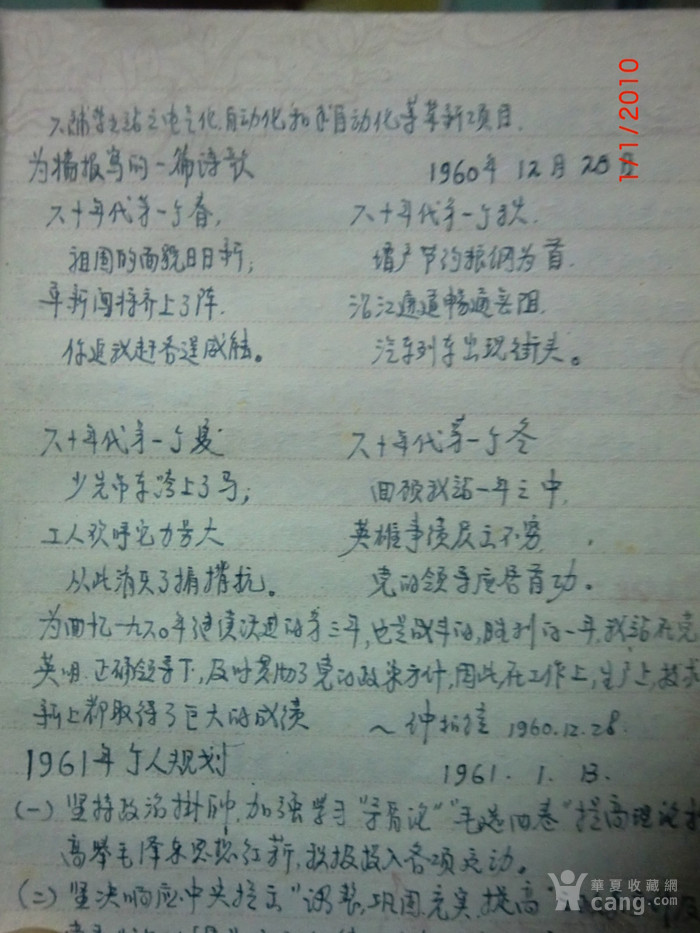 电气化,自动化和半自动化等革新项目.
为墙报写的一篇诗歌 1960年12月28日
六十年代第一个春, 六十年代第一个秋.
祖国的面貌日日新; 增产节约粮纲为首.
革新闯将齐上了阵. 沿江通道畅通无阻.
你追我赶各逞威能。 汽车列车出现街头。
六十年代第一个夏 六十年代第一个冬
少先吊车跨上了马; 回顾我站一年之中.
工人欢呼它力势大 英雄事绩层出不穷.
从此消灭了掮揹抗。 党的领导应居首功。
为回忆一九六〇年继续跃进的第三年,也是战斗的,胜利的一年,我站在党
英明.正确领导下,及时贯彻了党的政策方针,因此,在工作上,生产上,技术
新上都取得了巨大的成绩 1960.12.28.
1961年个人规划 1961.1.日.
(一)坚持政治掛帅,加强学习"矛盾论""毛选四卷"提高理论
高举毛泽东思想红旗,积极投入各项运动。
(二)坚决响应中央提出"调整,巩固,充实,提高"
1/1/2010
華夏收藏網
cang.com